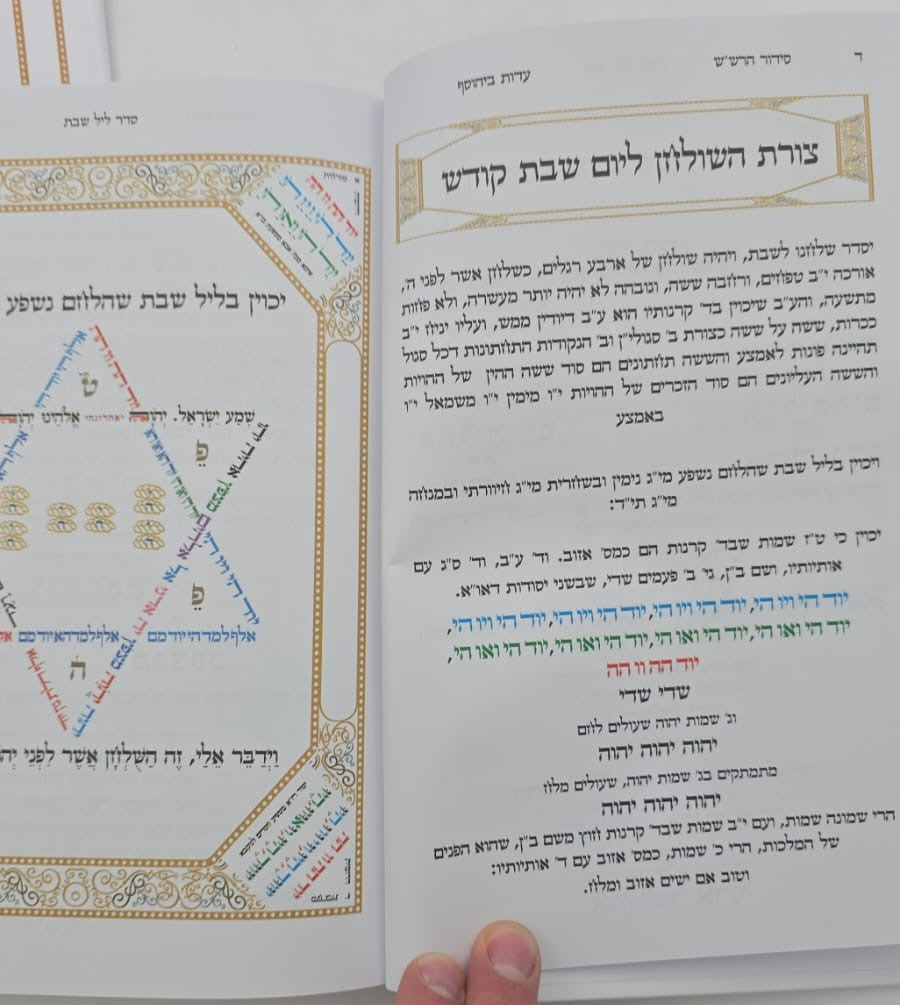 ד
סידור הרש״ש
עדות ביהוסף
צורת השולחן ליום שבת קודש
יסדר שלחנו לשבת, ויהיה שולחן של ארבע רגלים, כשלחן אשר לפני ה',
אורכה י״ב טפחים, ורחבה ששה, וגובהה לא יהיה יותר מעשרה, ולא פחות
מתשעה, והע״ב שיכוין בד' קרנותיו הוא ע״ב דיודין ממש, ועליו יניח י״ב
ככרות, ששה על ששה כצורת ב' סגולי״ן וב' הנקודות התחתונות דכל סגול
תהיינה פונות לאמצע והששה תחתונים הם סוד ששה ההין של ההויות
והששה העליונים הם סוד הזכרים של ההויות י״ו מימין י״ו משמאל י״ו
באמצע
ויכוין בליל שבת שהלחם נשפע מי״ג נימין ובשחרית מי״ג חיוורתי ובמנחה
מי״ג תי״ד:
יכוין כי ט״ז שמות שבד' קרנות הם כמס' אזוב. וד' ע״ב, וד' ס״ג עם
אותיותיו, ושם ב״ן, גי' ב' פעמים שדי, שבשני יסודות דאו״א.
יוד הי ויו הי, יוד הי ויו הי, יוד הי ויו הי, יוד הי ויו הי,
יוד הי ואו הי, יוד הי ואו הי, יוד הי ואו הי, יוד הי ואו הי,
יוד הה וו הה
שדי שדי
וג' שמות יהוה שעולים לחם
יהוה יהוה יהוה
מתמתקים בג' שמות יהוה, שעולים מלח
יהוה יהוה יהוה
הרי שמונה שמות, ועם י״ב שמות שבד' קרנות חוץ משם ב״ן, שהוא הפנים
של המלכות, הרי כ' שמות, כמס' אזוב עם ד' אותיותיו:
וטוב אם ישים אזוב ומלח.
סדר ליל שבת
יכוין בליל שבת שהלחם נשפע
ט
שְׁמַע יִשְׂרָאֵל.
פֵ
פֵ
אלף למד הא יוד מם אלף למד הא יוד מם
ה
וַיְדַבֵּר אֵלַי, זֶה הַשֻּׁלְחָן אֲשֶׁר לִפְנֵי